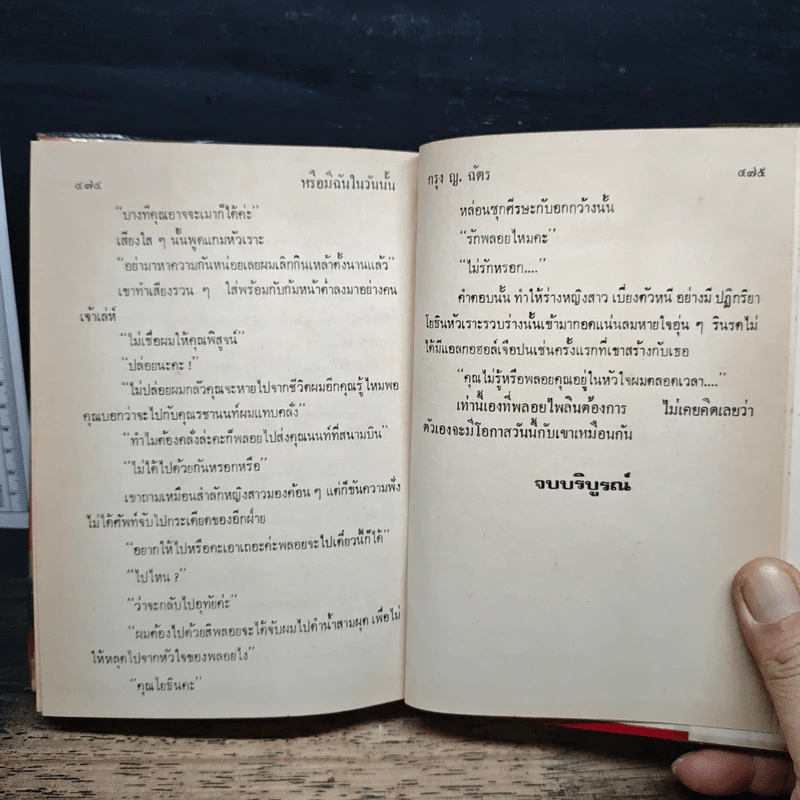 ๔๗๔
หรือมีฉันในวันนั้น
“บางทีคุณอาจจะเมาก็ได้ค่ะ”
เสียงใส ๆ นั้นพูดแกมหัวเราะ
“อย่ามาหาความกันหน่อยเลยผมเลิกกินเหล้าตั้งนานแล้ว”
เขาทำเสียงรวน ๆ ใส่พร้อมกับก้มหน้าต่ำลงมาอย่างคน
เจ้าเล่ห์
“ไม่เชื่อผมให้คุณพิสูจน์”
“ปล่อยนะคะ !”
“ไม่ปล่อยผมกลัวคุณจะหายไปจากชีวิตผมอีกคุณรู้ไหมพอ
คุณบอกว่าจะไปกับคุณรชานนท์ผมแทบคลั่ง”
“ทำไมต้องคลั่งล่ะคะก็พลอยไปส่งคุณนนท์ที่สนามบิน”
“ไม่ได้ไปด้วยกันหรอกหรือ”
เขาถามเหมือนสำลักหญิงสาวมองค้อน ๆ แต่ก็ขันความฟัง
ไม่ได้ศัพท์จับไปกระเดียดของอีกฝ่าย
“อยากให้ไปหรือคะเอาเถอะค่ะพลอยจะไปเดี๋ยวนี้ก็ได้”
“ไปไหน ?”
“ว่าจะกลับไปอุทัยค่ะ”
“ผมต้องไปด้วยสิพลอยจะได้จับผมไปดำน้ำสามผุด เพื่อไม่
ให้หลุดไปจากหัวใจของพลอยไง”
“คุณโยธินคะ”
กรุง ญ. ฉัตร
๔๗๕
หล่อนซุกศีรษะกับอกกว้างนั้น
“รักพลอยไหมคะ”
“ไม่รักหรอก....”
คำตอบนั้น ทำให้ร่างหญิงสาว เบี่ยงตัวหนี อย่างมี ปฏิกริยา
โยธินหัวเราะรวบร่างนั้นเข้ามากอดแน่นลมหายใจอุ่น ๆ รินรดไม่
ได้มีแอลกอฮอล์เจือปนเช่นครั้งแรกที่เขาสร้างกับเธอ
“คุณไม่รู้หรือพลอยคุณอยู่ในหัวใจผมตลอดเวลา....”
เท่านี้เองที่พลอยไพลินต้องการ ไม่เคยคิดเลยว่า
ตัวเองจะมีโอกาสวันนี้กับเขาเหมือนกัน
จบบริบูรณ์